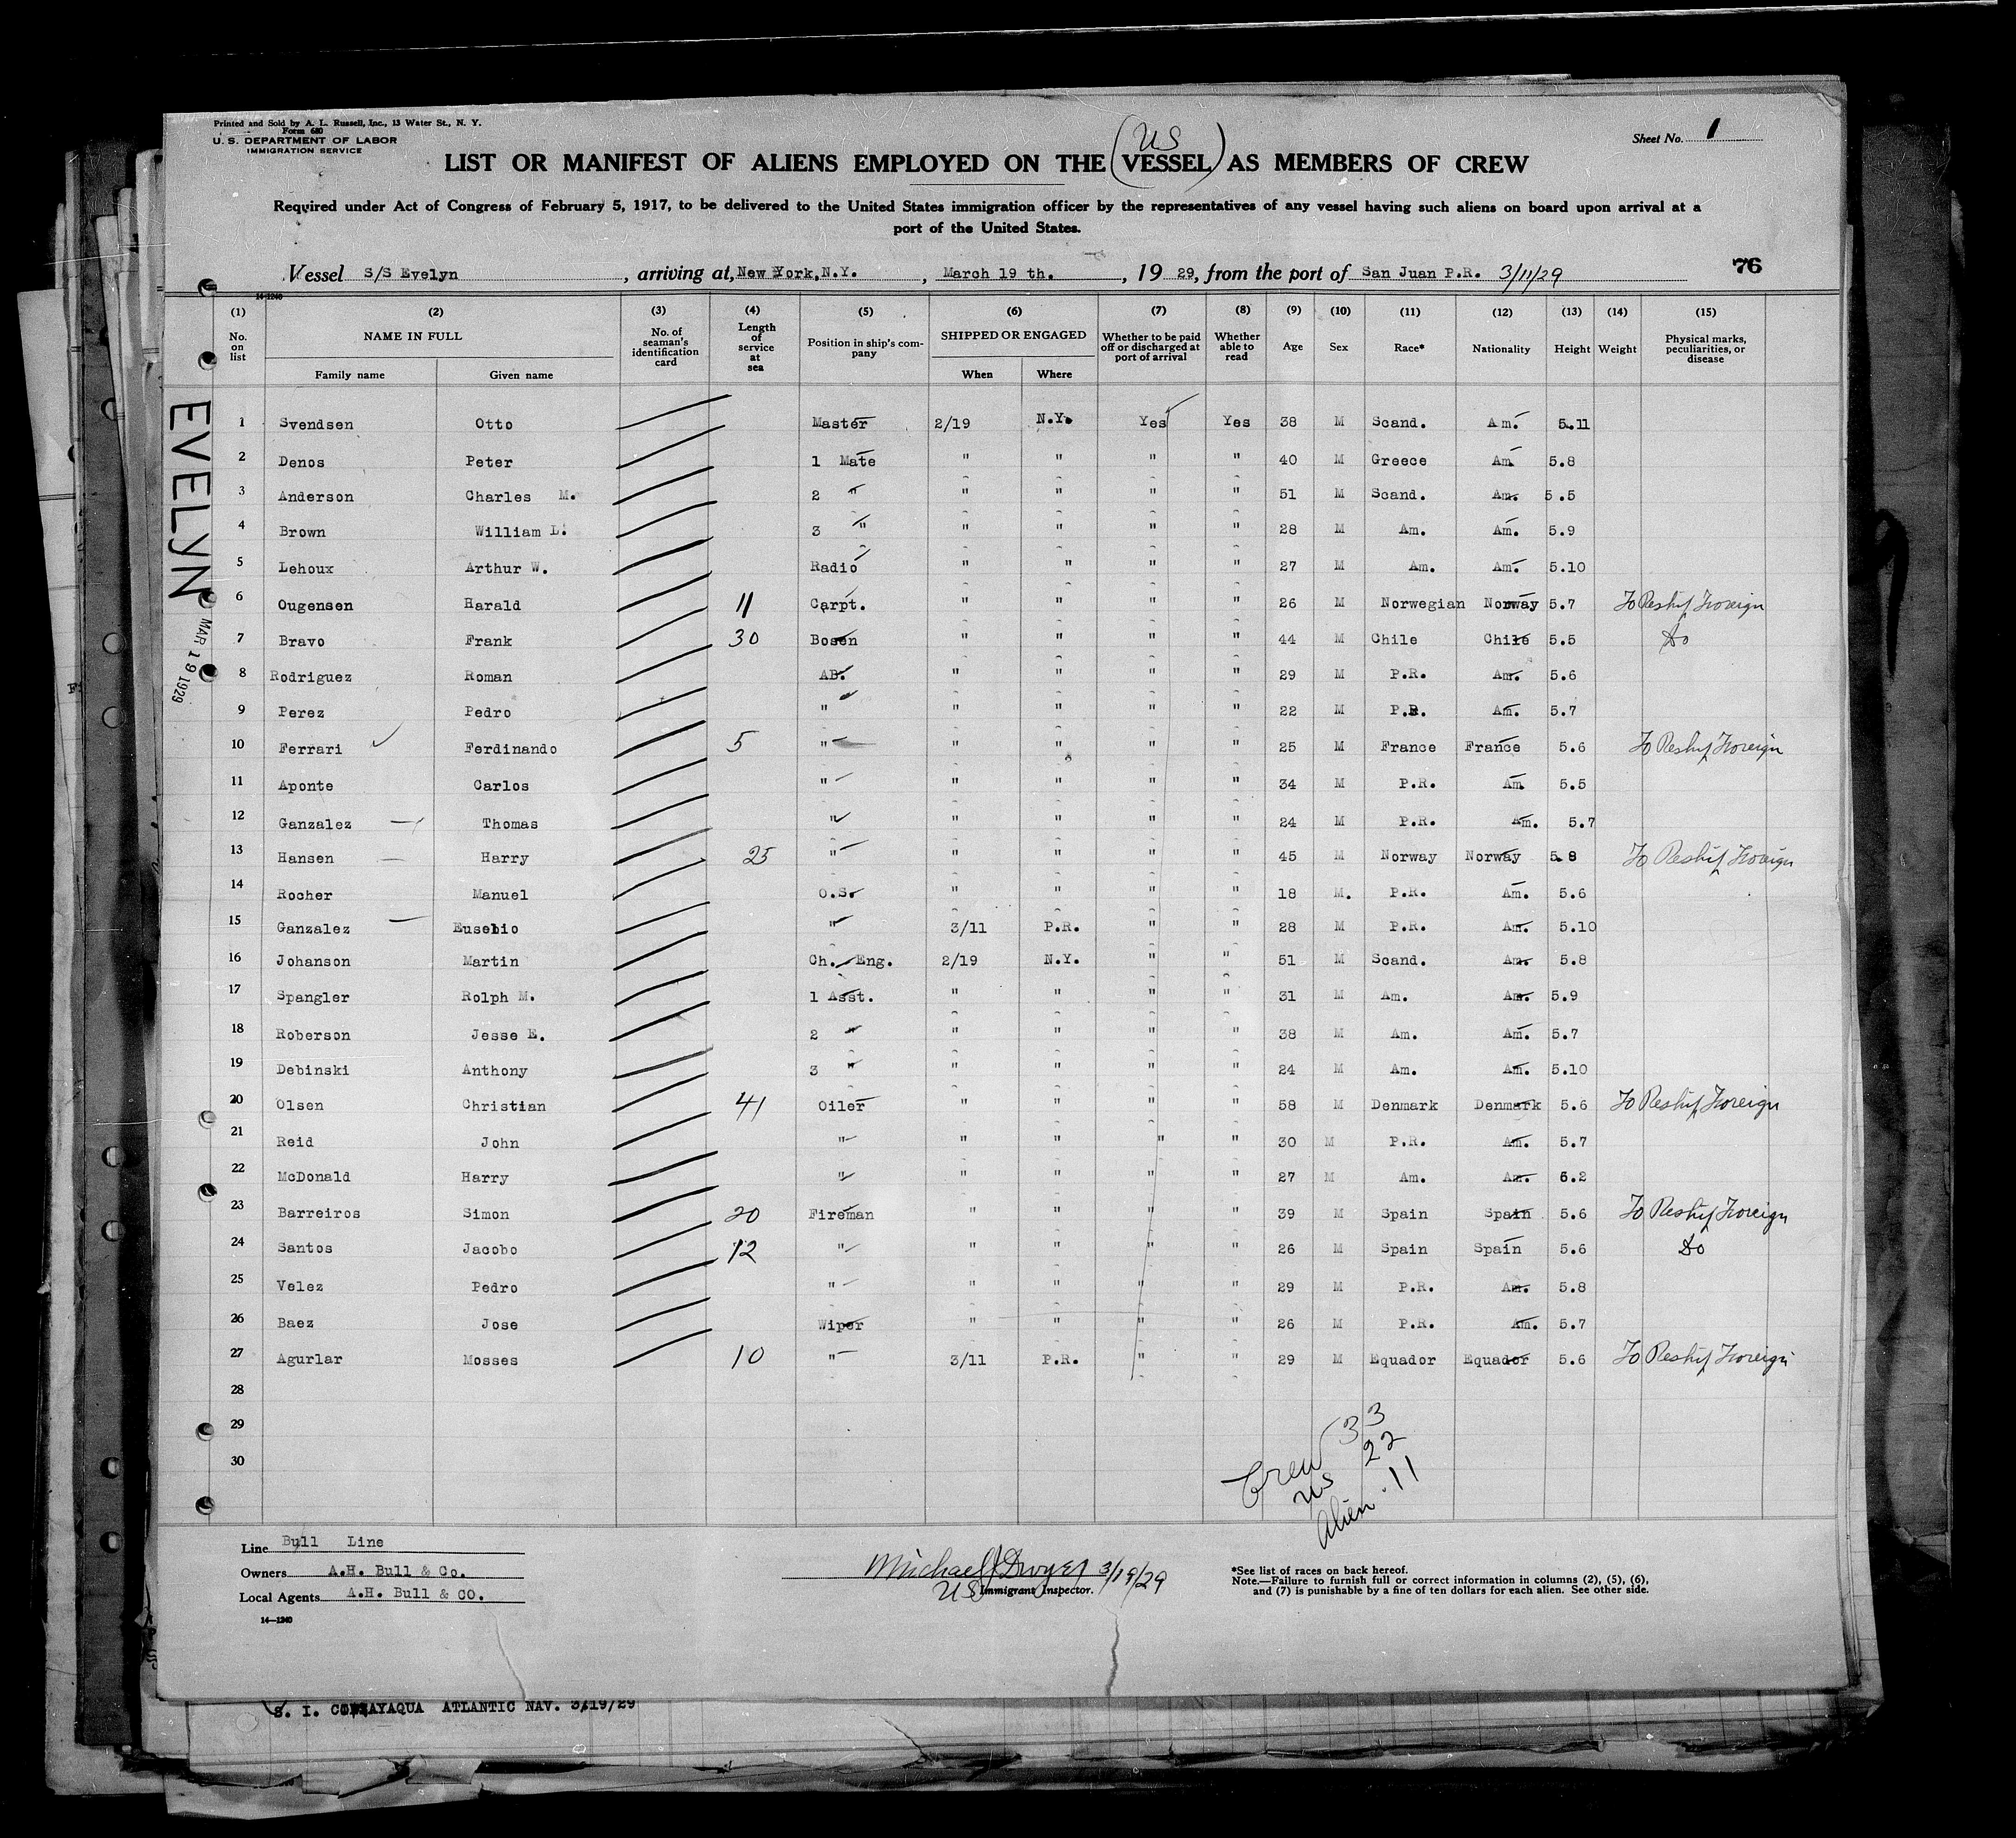 Printed and Sold by A. L. Russell, Inc., 13 Water St., N. Y.
Form 680
U. S. DEPARTMENT OF LABOR
IMMIGRATION SERVICE
Sheet No. 1
US
LIST OR MANIFEST OF ALIENS EMPLOYED ON THE (VESSEL) AS MEMBERS OF CREW
Required under Act of Congress of February 5, 1917, to be delivered to the United States immigration officer by the representatives of any vessel having such aliens on board upon arrival at a
port of the United States.
Vessel S/S Evelyn, arriving at, New York, N.Y., March 19 th., 19 29, from the port of San Juan P.R. 3/11/29
76
14-1240
(1) No. on list (2) NAME IN FULL Family name Given name (3) No. of seaman's identification card (4) Length of service at sea (5) Position in ship's company (6) SHIPPED OR ENGAGED When Where (7) Whether to be paid off or discharged at port of arrival (8) Whether able to read (9) Age (10) Sex (11) Race* (12) Nationality (13) Height (14) Weight (15) Physical marks, peculiarities, or disease
EVELYN
MAR 19 1929
1 Svendsen Otto Master 2/19 N.Y. Yes Yes 38 M Scand. Am. 5.11
2 Denos Peter 1 Mate " " " " 40 M Greece Am 5.8
3 Anderson Charles M. 2 " " " " " 51 M Scand. Am. 5.5
4 Brown William L. 3 " " " " " 28 M Am. Am. 5.9
5 Lehoux Arthur W. Radio " " " " 27 M Am. Am. 5.10
6 Ougensen Harald 11 Carpt. " " " " 26 M Norwegian Norway 5.7 To Reship Foreign
7 Bravo Frank 30 Bosen " " " " 44 M Chile Chile 5.5 Do
8 Rodriguez Roman AB. " " " " 29 M P.R. Am. 5.6
9 Perez Pedro " " " " " 22 M P.R. Am. 5.7
10 Ferrari Ferdinando 5 " " " " " 25 M France France 5.6 To Reship Foreign
11 Aponte Carlos " " " " " 34 M P.R. Am 5.5
12 Ganzalez Thomas " " " " " 24 M P.R. Am. 5.7
13 Hansen Harry 25 " " " " " 45 M Norway Norway 5.8 To Reship Foreign
14 Rocher Manuel O.S. " " " " 18 M. P.R. Am. 5.6
15 Ganzalez Eusebio " 3/11 P.R. " " 28 M P.R. Am. 5.10
16 Johanson Martin Ch. Eng. 2/19 N.Y. " " 51 M Scand. Am. 5.8
17 Spangler Rolph M. 1 Asst. " " " " 31 M Am. Am. 5.9
18 Roberson Jesse E. 2 " " " " " 38 M Am. Am. 5.7
19 Debinski Anthony 3 " " " " " 24 M Am. Am. 5.10
20 Olsen Christian 41 Oiler " " " " 58 M Denmark Denmark 5.6 To Reship Foreign
21 Reid John " " " " " 30 M P.R. Am. 5.7
22 McDonald Harry " " " " " 27 M Am. Am. 6.2
23 Barreiros Simon 20 Fireman " " " " 39 M Spain Spain 5.6 To Reship Foreign
24 Santos Jacobo 12 " " " " " 26 M Spain Spain 5.6 Do
25 Velez Pedro " " " " " 29 M P.R. Am. 5.8
26 Baez Jose Wiper " " " " 26 M P.R. Am. 5.7
27 Agurlar Mosses 10 " 3/11 P.R. " " 29 M Equador Equador 5.6 To Reship Foreign
28
29
30
Crew 33
US 22
Alien 11
Line Bull Line
Owners A.H. Bull & Co.
Local Agents A.H. Bull & CO.
14—1240
Michael J Dwyer 3/19/29
US Immigrant Inspector.
*See list of races on back hereof.
Note.—Failure to furnish full or correct information in columns (2), (5), (6),
and (7) is punishable by a fine of ten dollars for each alien. See other side.
ATLANTIC NAV. 3/19/29